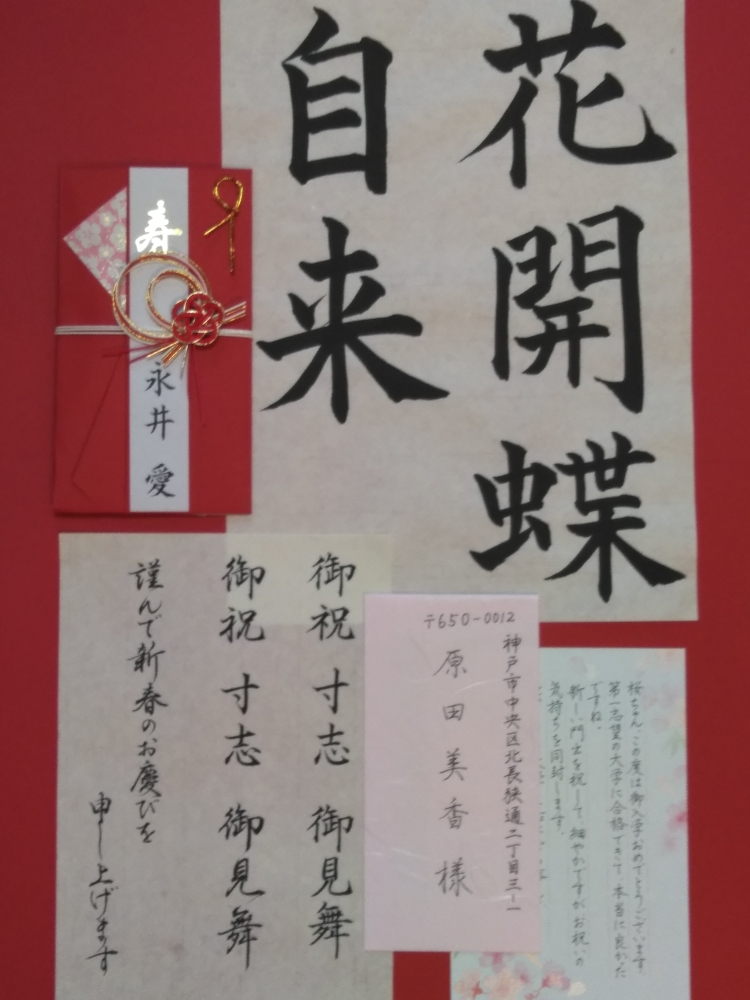 花開蝶
自来
寿
永井 愛
御祝 寸志 御見舞
御祝 寸志 御見舞
謹んで新春のお慶びを
申し上げます
〒650-0012
神戸市中央区北長狭通二丁目三-一
原田美香様
桜ちゃん、この度は御入学おめでとうございます。
第一志望の大学に合格できて本当に良かった
ですね。
新しい門出を祝して、細やかですがお祝いの
気持ちを同封します。